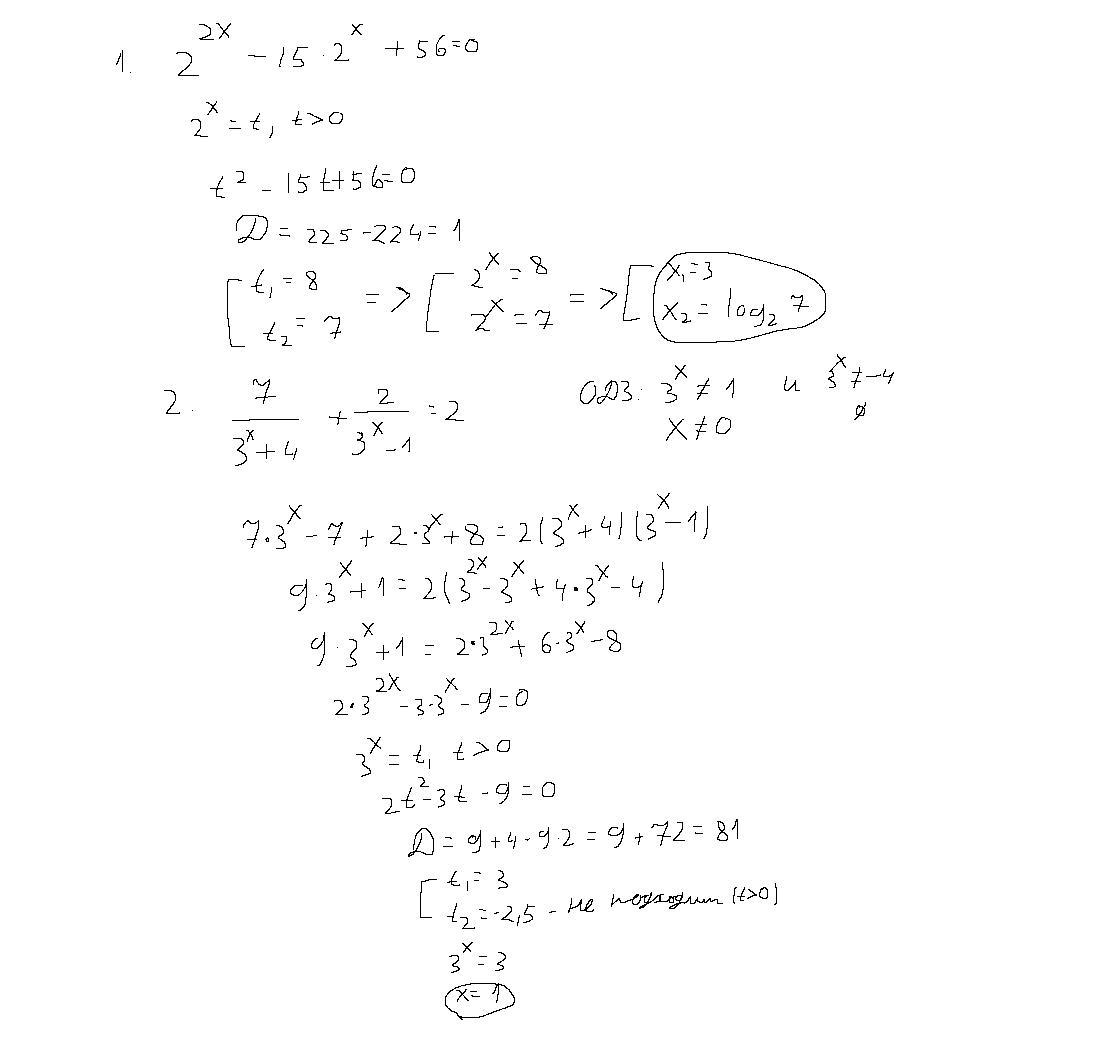 1. 2^{2x} - 15 · 2^x + 56 = 0
2^x = t, t > 0
t^2 - 15t + 56 = 0
D = 225 - 224 = 1
[ t_1 = 8 t_2 = 7 => [ 2^x = 8 2^x = 7 => [ x_1 = 3 x_2 = log_2 7
2. 7/(3^x + 4) + 2/(3^x - 1) = 2 ОДЗ: 3^x ≠ 1 и 3^x ≠ -4
x ≠ 0 ∅
7·3^x - 7 + 2·3^x + 8 = 2(3^x + 4)(3^x - 1)
9·3^x + 1 = 2(3^{2x} - 3^x + 4·3^x - 4)
9·3^x + 1 = 2·3^{2x} + 6·3^x - 8
2·3^{2x} - 3·3^x - 9 = 0
3^x = t, t > 0
2t^2 - 3t - 9 = 0
D = 9 + 4·9·2 = 9 + 72 = 81
[ t_1 = 3
t_2 = -2,5 - не подходит (t>0)
3^x = 3
x = 1